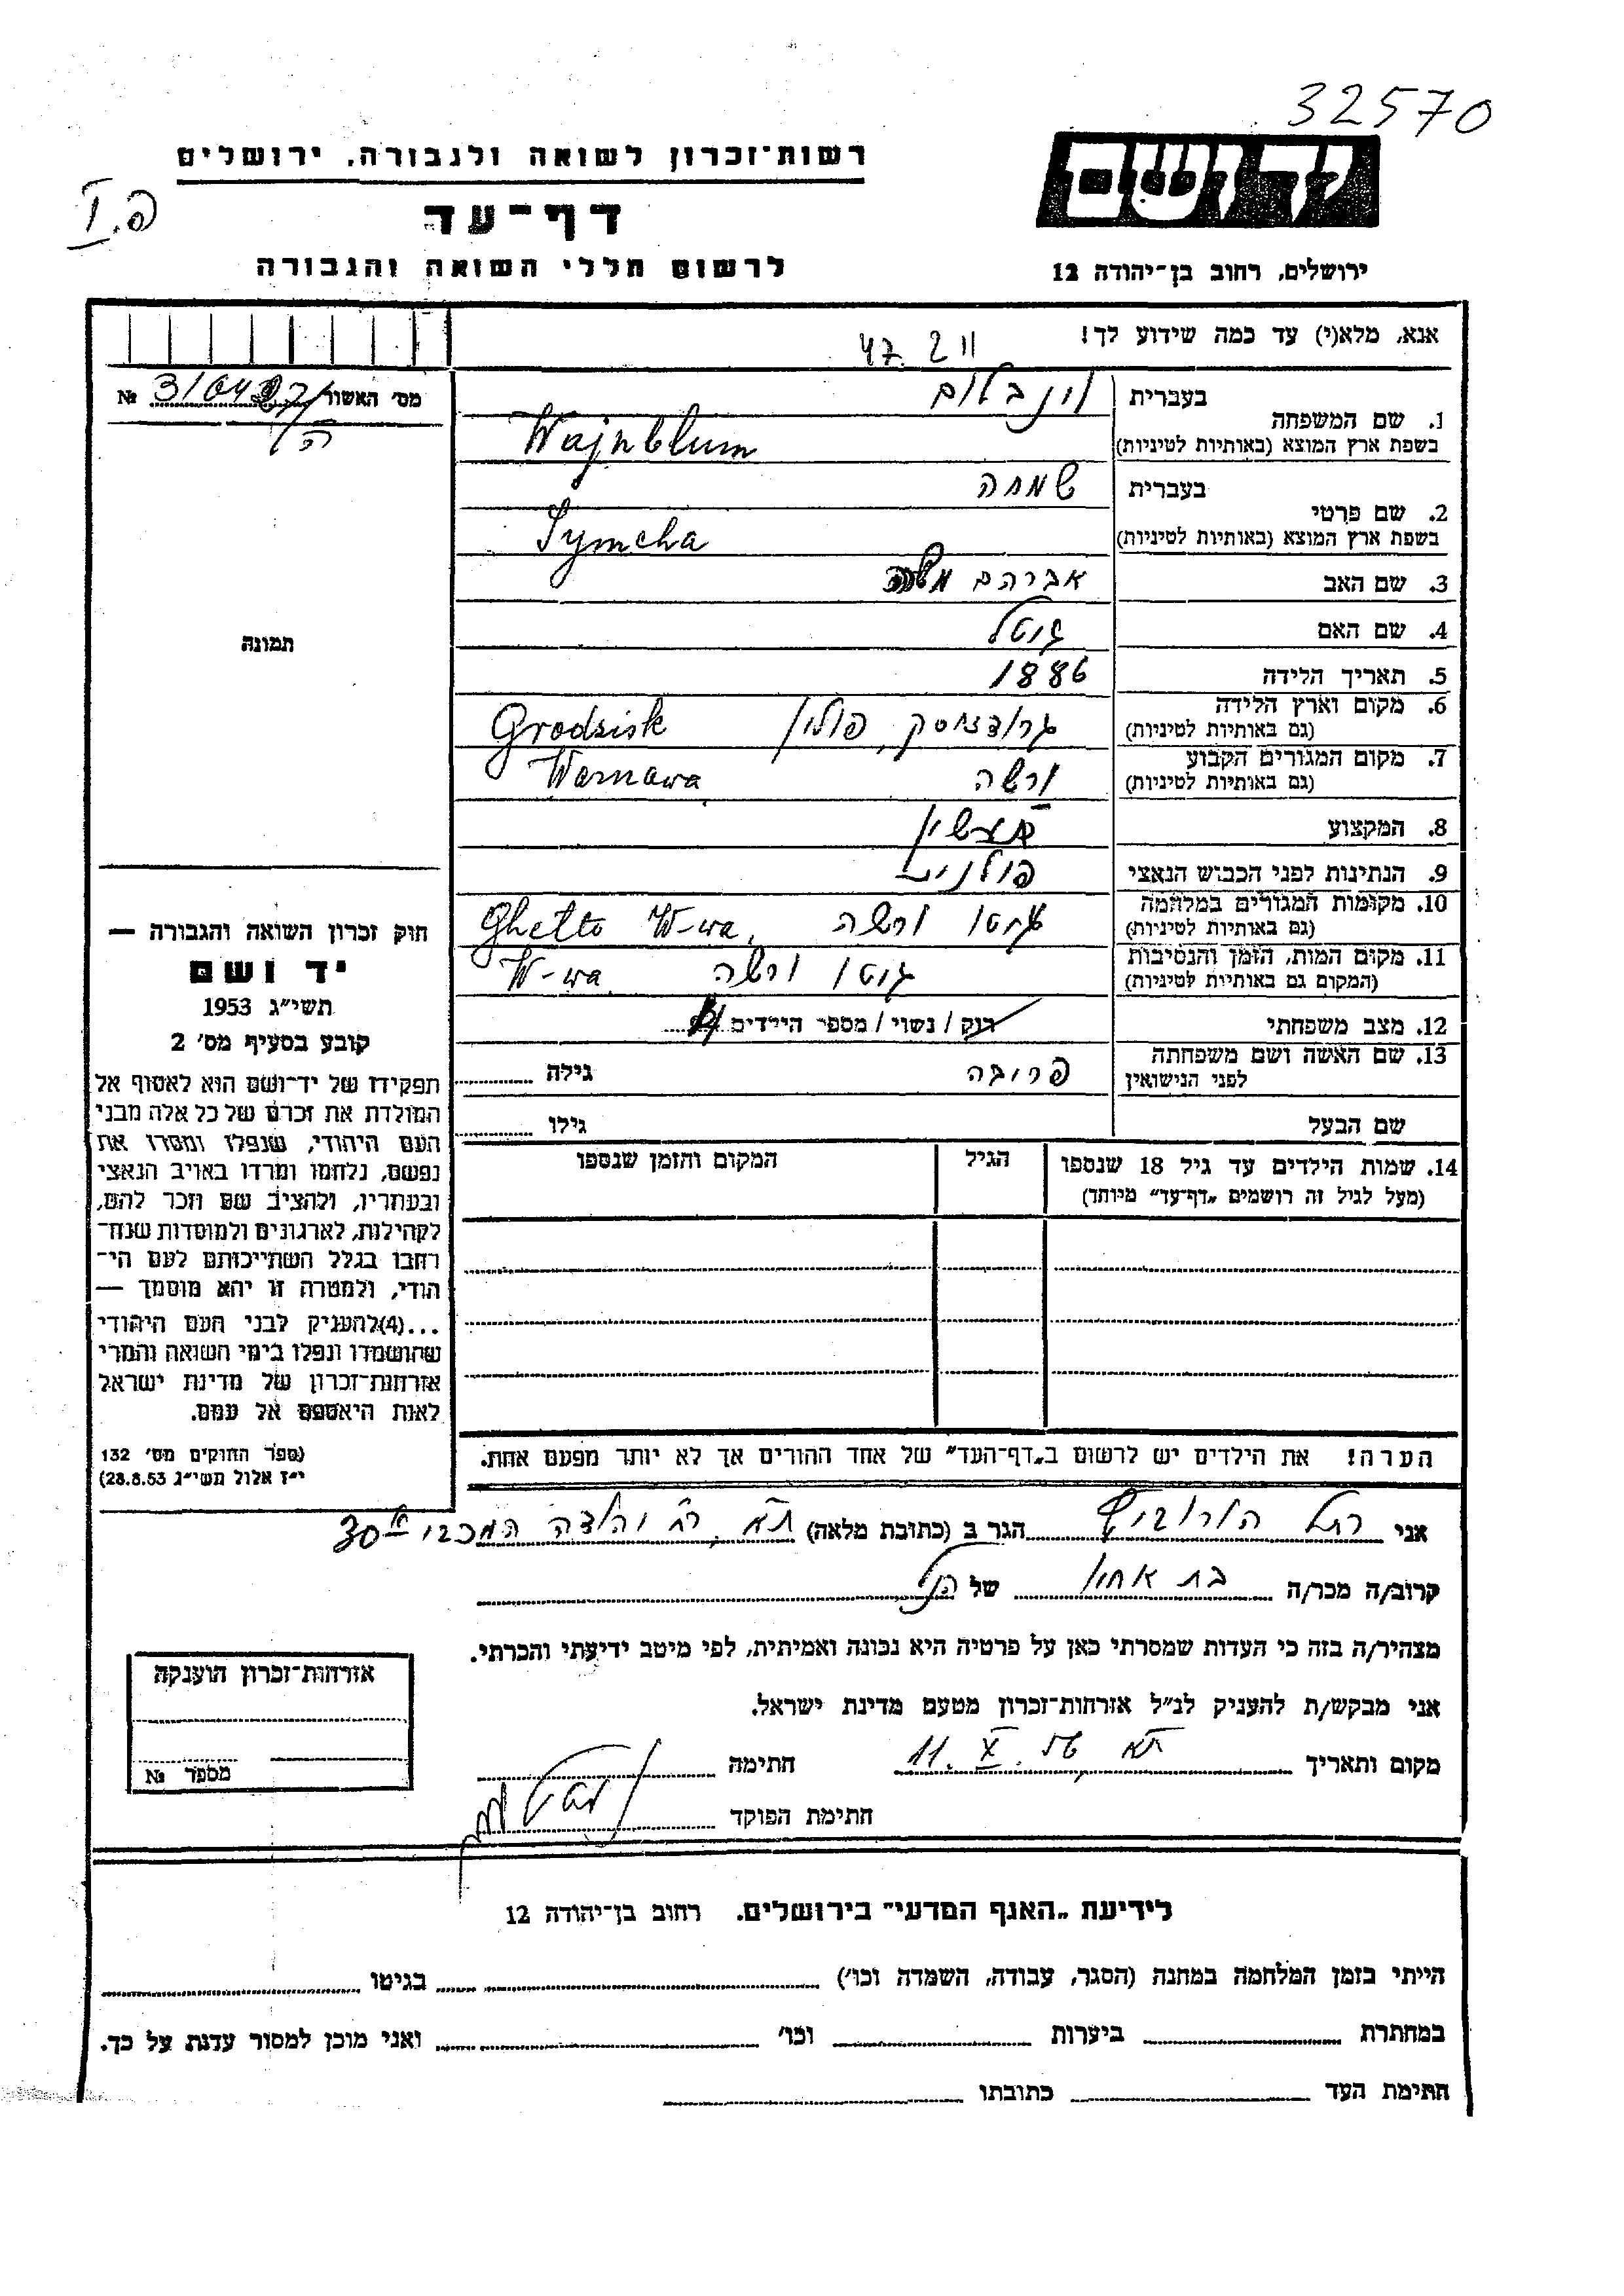 32570
רשות־זכרון לשואה ולגבורה, ירושלים
יד ושם
פ. I
דף־עד
לרשום חללי השואה והגבורה
ירושלים, רחוב בן־יהודה 12
אנא, מלא(י) עד כמה שידוע לך!
מס' האשור № 
1. שם המשפחה
בעברית וינבלום
בשפת ארץ המוצא (באותיות לטיניות) Wajnblum
2. שם פרטי
בעברית שמחה
בשפת ארץ המוצא (באותיות לטיניות) Symcha
3. שם האב אברהם משה
4. שם האם גוטל
5. תאריך הלידה 1886
6. מקום וארץ הלידה גרודזיסק, פולין Grodzisk
(גם באותיות לטיניות)
7. מקום המגורים הקבוע ורשה Warszawa
(גם באותיות לטיניות)
8. המקצוע תעשין
9. הנתינות לפני הכבוש הנאצי פולנית
10. מקומות המגורים במלחמה גיטו ורשה Ghetto W-wa,
(גם באותיות לטיניות)
11. מקום המות, הזמן והנסיבות גיטו ורשה W-wa
(המקום גם באותיות לטיניות)
12. מצב משפחתי רוק / נשוי / מספר הילדים
13. שם האשה ושם משפחתה פרובה גילה
לפני הנישואין
שם הבעל גילו
14. שמות הילדים עד גיל 18 שנספו הגיל המקום והזמן שנספו
(מעל לגיל זה רושמים „דף־עד" מיוחד)
תמונה
חוק זכרון השואה והגבורה —
יד ושם
תשי״ג 1953
קובע בסעיף מס' 2
תפקידו של יד־ושם הוא לאסוף אל
המולדת את זכרם של כל אלה מבני
העם היהודי, שנפלו ומסרו את
נפשם, נלחמו ומרדו באויב הנאצי
ובעוזריו, ולהציב שם וזכר להם,
לקהילות, לארגונים ולמוסדות שנח־
רבו בגלל השתייכותם לעם הי־
הודי, ולמטרה זו יהא מוסמך —
...(4) להעניק לבני העם היהודי
שהושמדו ונפלו בימי השואה והמרי
אזרחות־זכרון של מדינת ישראל
לאות היאספם אל עמם.
(ספר החוקים מס' 132
י״ז אלול תשי״ג 28.8.53)
הערה! את הילדים יש לרשום ב„דף־העד" של אחד ההורים אך לא יותר מפעם אחת.
אני רחל הורוביץ הגר ב (כתובת מלאה) ת״א, רח' יהודה המכבי 30 א
קרוב/ה מכר/ה בת אחיו של הנ״ל
מצהיר/ה בזה כי העדות שמסרתי כאן על פרטיה היא נכונה ואמיתית, לפי מיטב ידיעתי והכרתי.
אני מבקש/ת להעניק לנ״ל אזרחות־זכרון מטעם מדינת ישראל.
מקום ותאריך ת״א 11. X. 56 חתימה
חתימת הפוקד
אזרחות־זכרון הוענקה
מספר №
לידיעת „האגף המדעי" בירושלים, רחוב בן־יהודה 12
הייתי בזמן המלחמה במחנה (הסגר, עבודה, השמדה וכו') בגיטו
במחתרת ביערות וכו' ואני מוכן למסור עדות על כך.
חתימת העד כתובתו